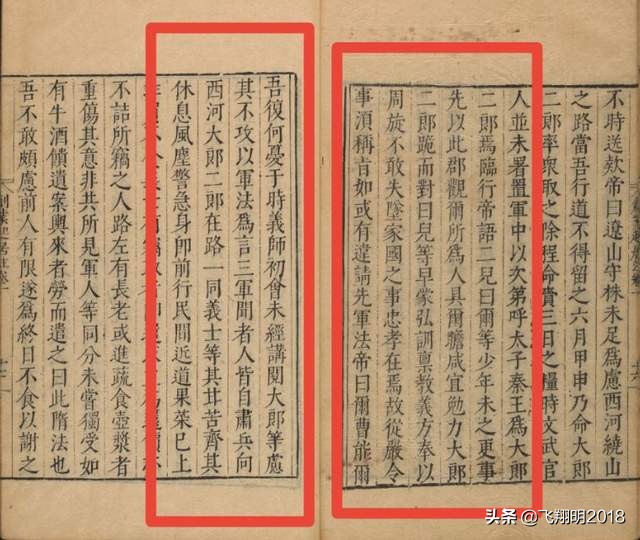 不時送欵帝曰遼山守株未足爲慮西河繞山
之路當吾行道不得留之六月甲申乃命大郎
二郎率衆取之除程命賫三日之糧時文武官
人並未署置軍中以次第呼太子秦王爲大郎
二郎焉臨行帝語二兒曰爾等少年未之更事
先以此郡觀爾所爲人具爾瞻咸宜勉力大郎
二郎跪而對曰兒等早蒙弘訓禀教義方奉以
周旋不敢失墜家國之事忠孝在焉故從嚴令
事湏稱㫖如或有違請先軍法帝曰爾曹能爾
吾復何憂于時義師初會未經講閱大郎等慮
其不攻以軍法爲言三軍聞者人皆自肅兵向
西河大郎二郎在路一同義士等其甘苦齊其
休息風塵警急身卽前行民間近道果菜已上
不詰所竊之人路左有長老或進蔬食壺漿者
重傷其意非共所見軍人等同分未嘗獨受如
有牛酒饋遺案輿來者勞而遣之曰此隋法也
吾不敢頗慮前人有限遂爲終日不食以謝之
头条 @飞翔明2018